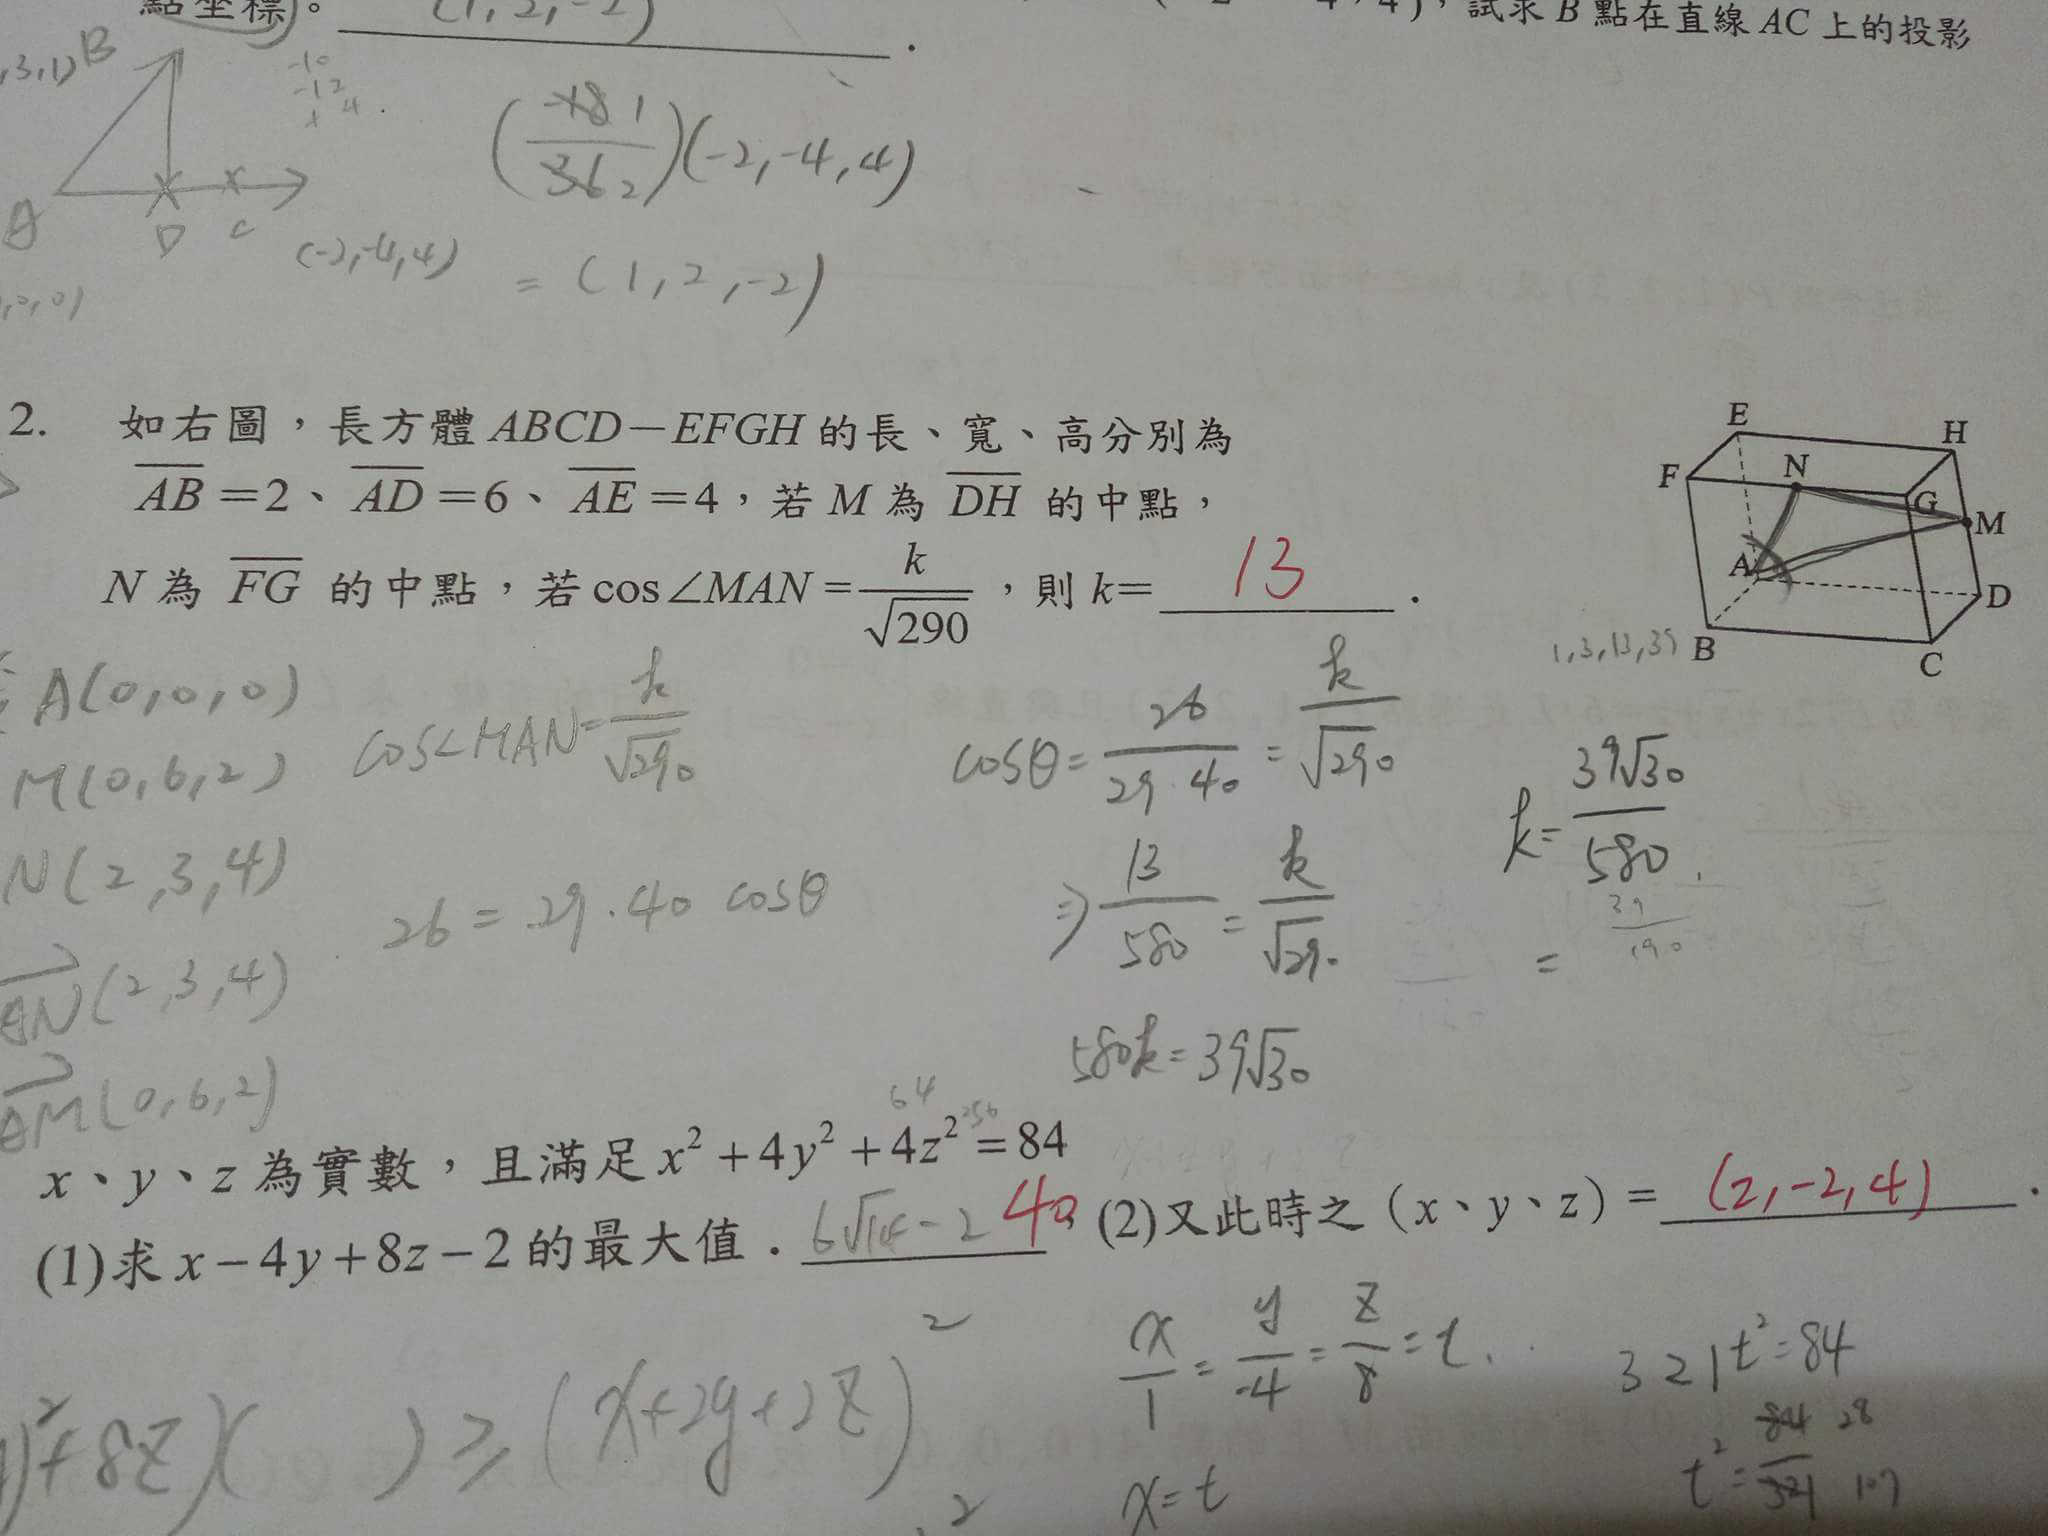 點坐標。 (1, 2, -2) .
試求 B 點在直線 AC 上的投影
,3,1) B
-10
-12
4
A D C
(-2,-4,4)
,0,0)
(-18 1 / 36 2)(-2,-4,4)
= (1, 2, -2)
2. 如右圖，長方體 ABCD－EFGH 的長、寬、高分別為
AB＝2、AD＝6、AE＝4，若 M 為 DH 的中點，
N 為 FG 的中點，若 cos∠MAN = k/√290，則 k= 13 .
E H F N G M A D B C
1,3,13,39
A(0,0,0)
M(0,6,2)
N(2,3,4)
AN(2,3,4)
AM(0,6,2)
cos∠MAN = k/√290
26 = 29·40 cosθ
cosθ = 26/29·40 = k/√290
⇒ 13/580 = k/√290
580k = 39√30
k = 39√30/580
= 39/190
64 256
x、y、z 為實數，且滿足 x²+4y²+4z²=84
(1)求 x－4y＋8z－2 的最大值． 6√14-2 40 (2)又此時之（x、y、z）= (2,-2,4) .
²+8z)( ) ≥ (x+2y+2z)²
x/1 = y/-4 = z/8 = t
x=t
321t²=84
t² = 84/321 28 107